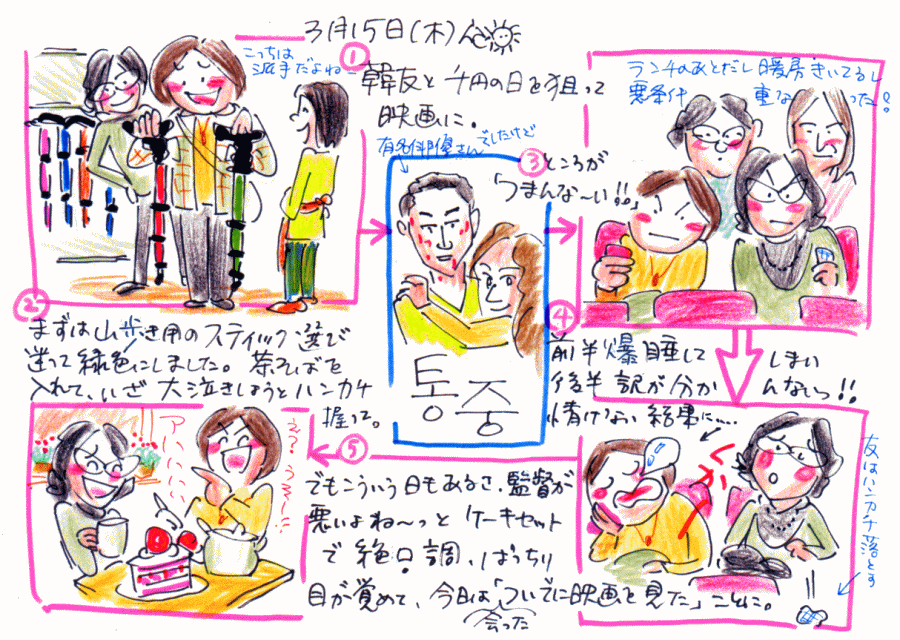 3月15日(木)
①
こっちは
派手だよね
韓友と千円の日を狙って
映画に。
有名俳優さんでしたけど
②
まずは山歩き用のスティック選び
迷って緑色にしました。茶そばを
入れて、いざ大泣きしようとハンカチ
握って。
통증
③
ところが
「つまんな〜い!!」
ランチのあとだし暖房きいてるし
悪条件 重なった!!
④
前半爆睡して
後半訳が分か
情けない結果に……
しまい
んないっ!!
友はハンカチ落とす
⑤
でもこういう日もあるさ、監督が
悪いよね〜っとケーキセット
で絶口調、ばっちり
目が覚めて、今日は「ついでに映画を見た」ことに。
会った
アハハハハ
え?うそー!!